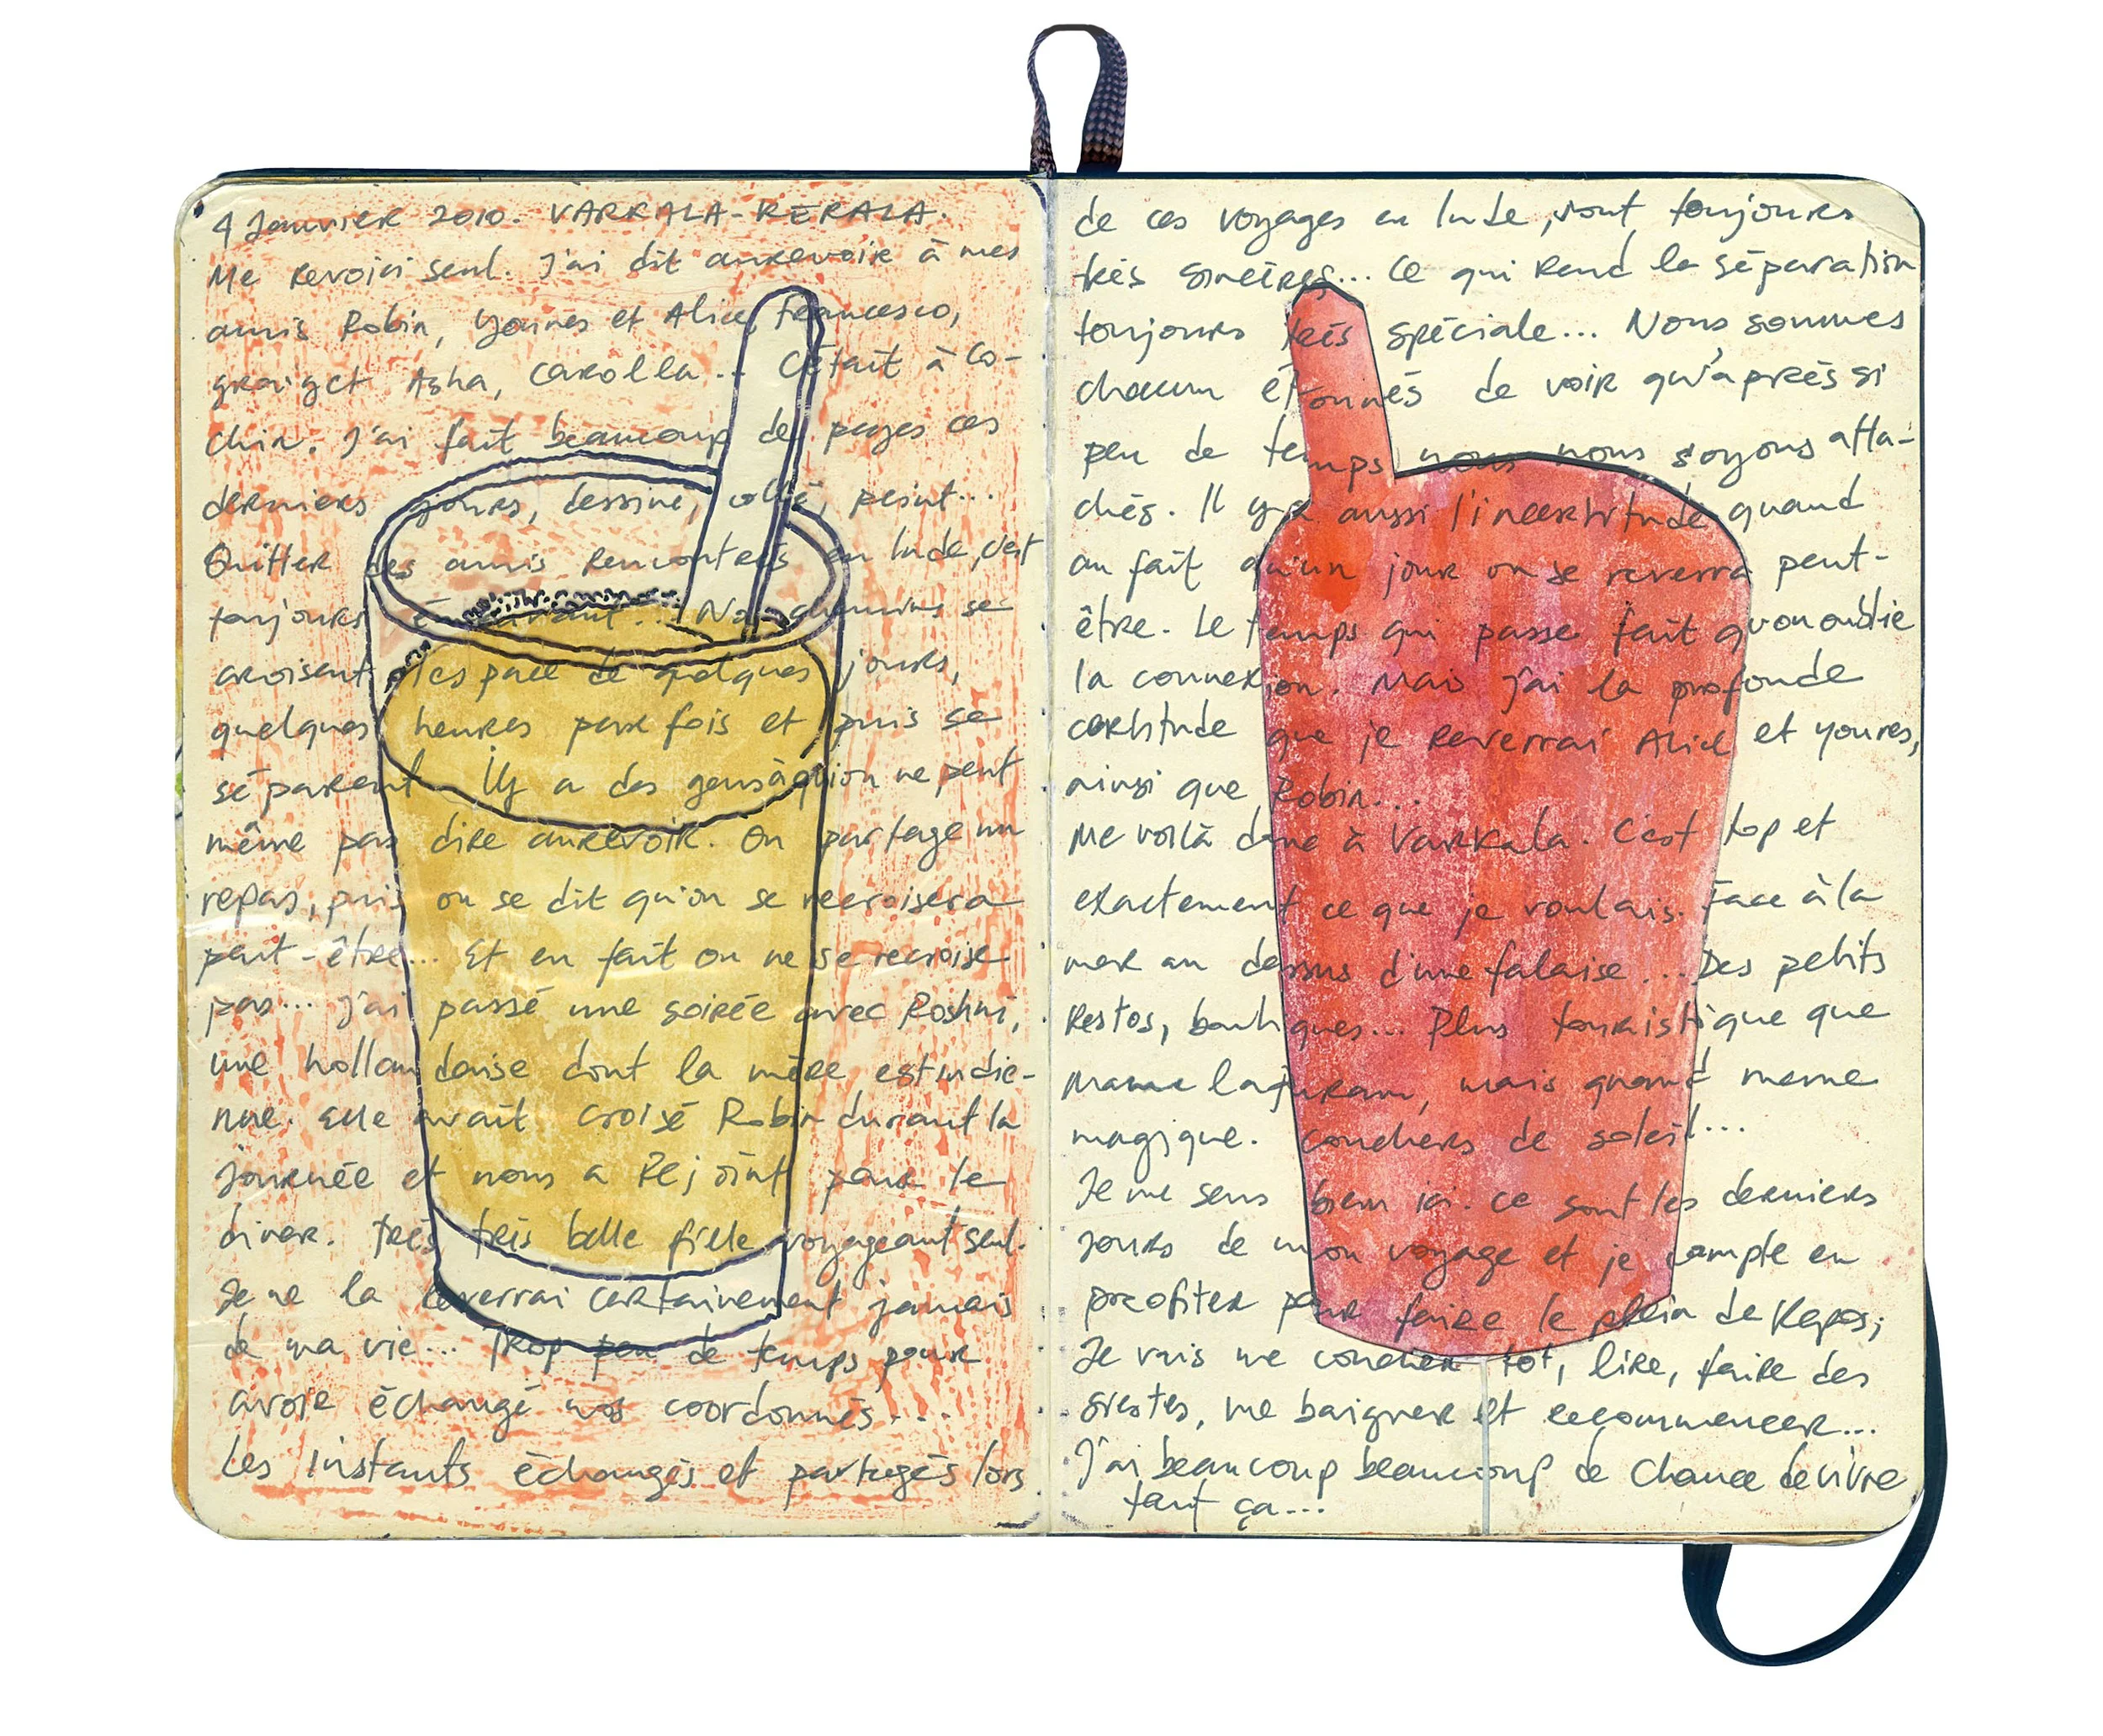 4 Janvier 2010. VARKALA-KERALA.
Me revoici seul. J'ai dit aurevoir à mes
amis Robin, Younes et Alice, Francesco,
Asha, Carolla... C'était à Co-
chin. J'ai fait beaucoup de pages ces
derniers jours, dessiné, collé, peint...
Quitter des amis rencontrés en Inde, c'est
toujours ... Nos chemins se
croisent l'espace de quelques jours,
quelques heures parfois et puis se
séparent. Il y a des gens à qui on ne peut
même pas dire aurevoir. On partage un
repas, puis on se dit qu'on se recroisera
peut-être... Et en fait on ne se recroise
pas... J'ai passé une soirée avec Roshni,
une hollandaise dont la mère est indie-
nne. Elle avait croisé Robin durant la
journée et nous a rejoint pour le
diner. Très très belle fille voyageant seul.
Je ne la reverrai certainement jamais
de ma vie... Trop peu de temps pour
avoir échangé nos coordonnés...
Les instants échangés et partagés lors
de ces voyages en Inde, sont toujours
très sincères... Ce qui rend la séparation
toujours très spéciale... Nous sommes
chacun étonnés de voir qu'après si
peu de temps nous nous soyons atta-
chés. Il y a aussi l'incertitude quand
au fait qu'un jour on se reverra peut-
être. Le temps qui passe fait qu'on oublie
la connexion. Mais j'ai la profonde
certitude que je reverrai Alice et Younes,
ainsi que Robin...
Me voilà donc à Varkala. C'est top et
exactement ce que je voulais. Face à la
mer au dessus d'une falaise... Des petits
restos, boutiques... Plus touristique que
mais quand meme
magique. Couchers de soleil...
Je me sens bien ici. Ce sont les derniers
jours de mon voyage et je compte en
profiter pour faire le plein de repos,
Je vais me coucher tôt, lire, faire des
siestes, me baigner et recommencer...
J'ai beaucoup beaucoup de chance de vivre
tout ça...